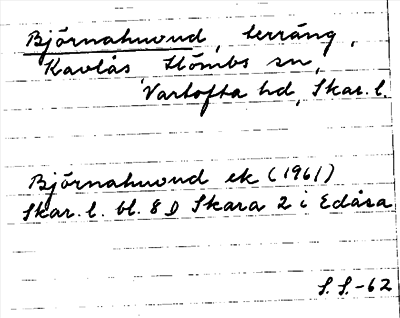 Björnahuvud, terräng,
Kavlås, Hömbs sn,
Vartofta hd, Skar. l.
Björnahuvud ek (1961)
Skar. l. bl. 8 D Skara 2 i Edåsa
S. S.-62